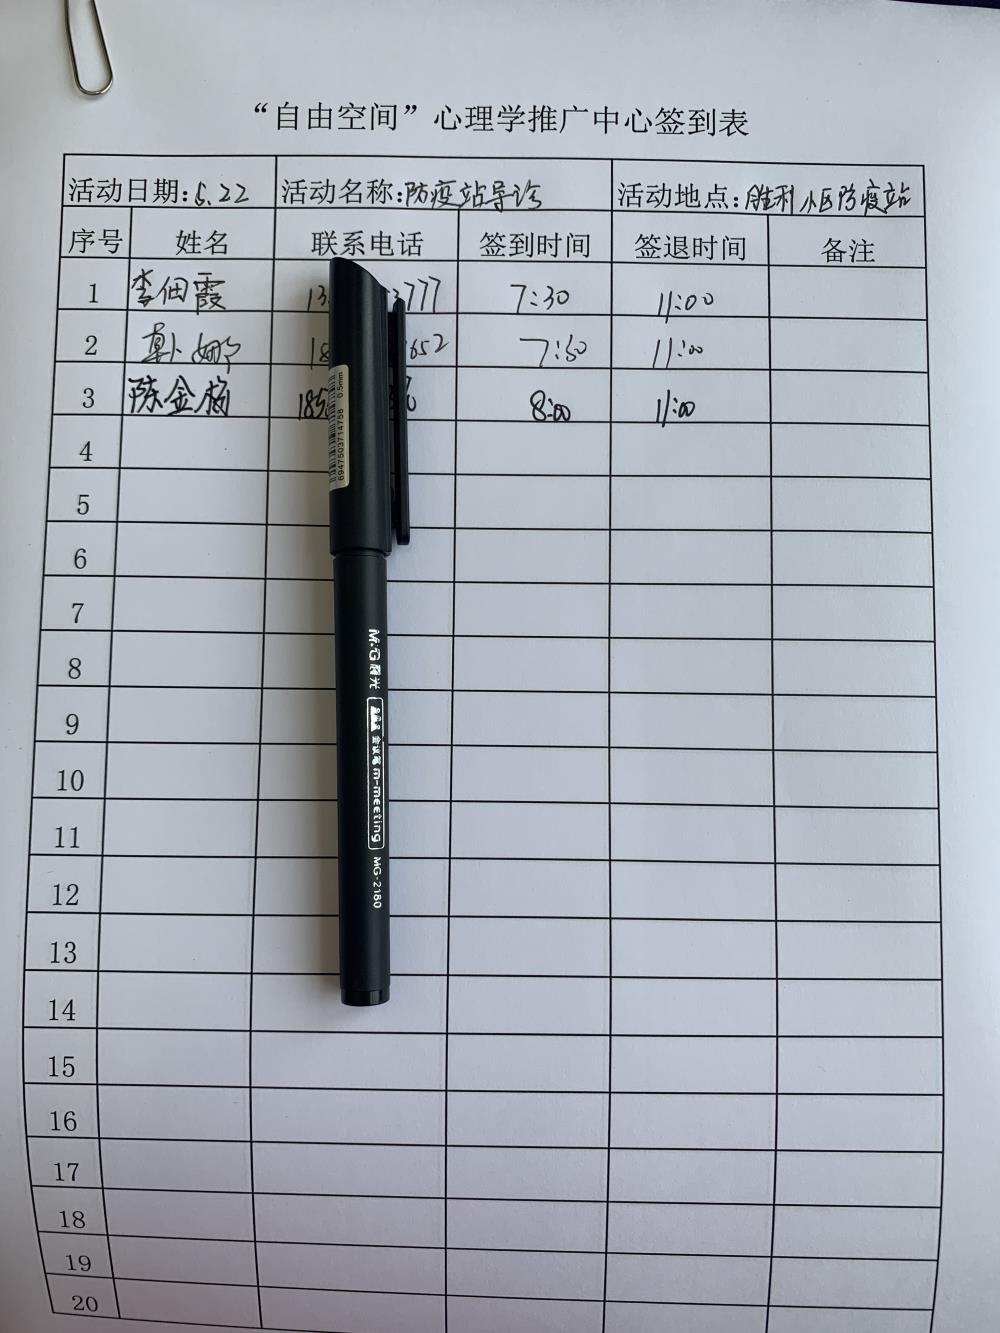 “自由空间”心理学推广中心签到表
活动日期:5.22 活动名称:防疫站导诊 活动地点:胜利小区防疫站
序号 姓名 联系电话 签到时间 签退时间 备注
1 李佃霞 13 3777 7:30 11:00
2 娜 18 652 7:50 11:00
3 陈金梅 185 0 8:00 11:00
4
5
6
7
8
9
10
11
12
13
14
15
16
17
18
19
20
6947503714758 0.5mm
M&G晨光 会议笔 m-meeting MG-2180